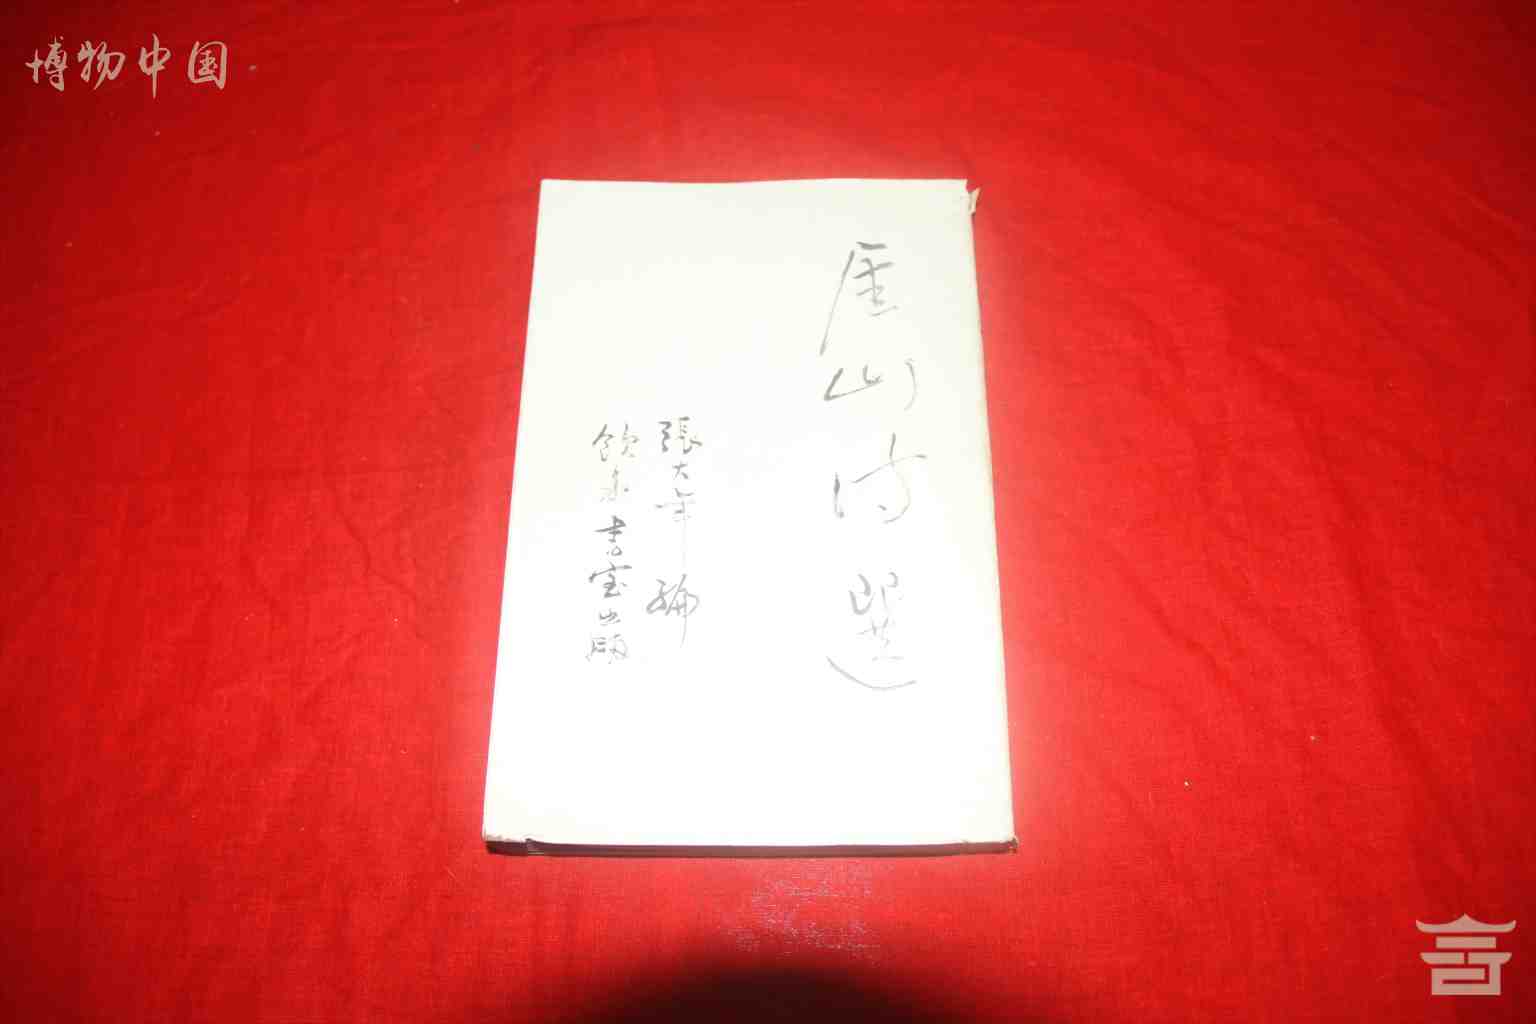 博物中国
厓山诗選
張大年編
飲書室出版